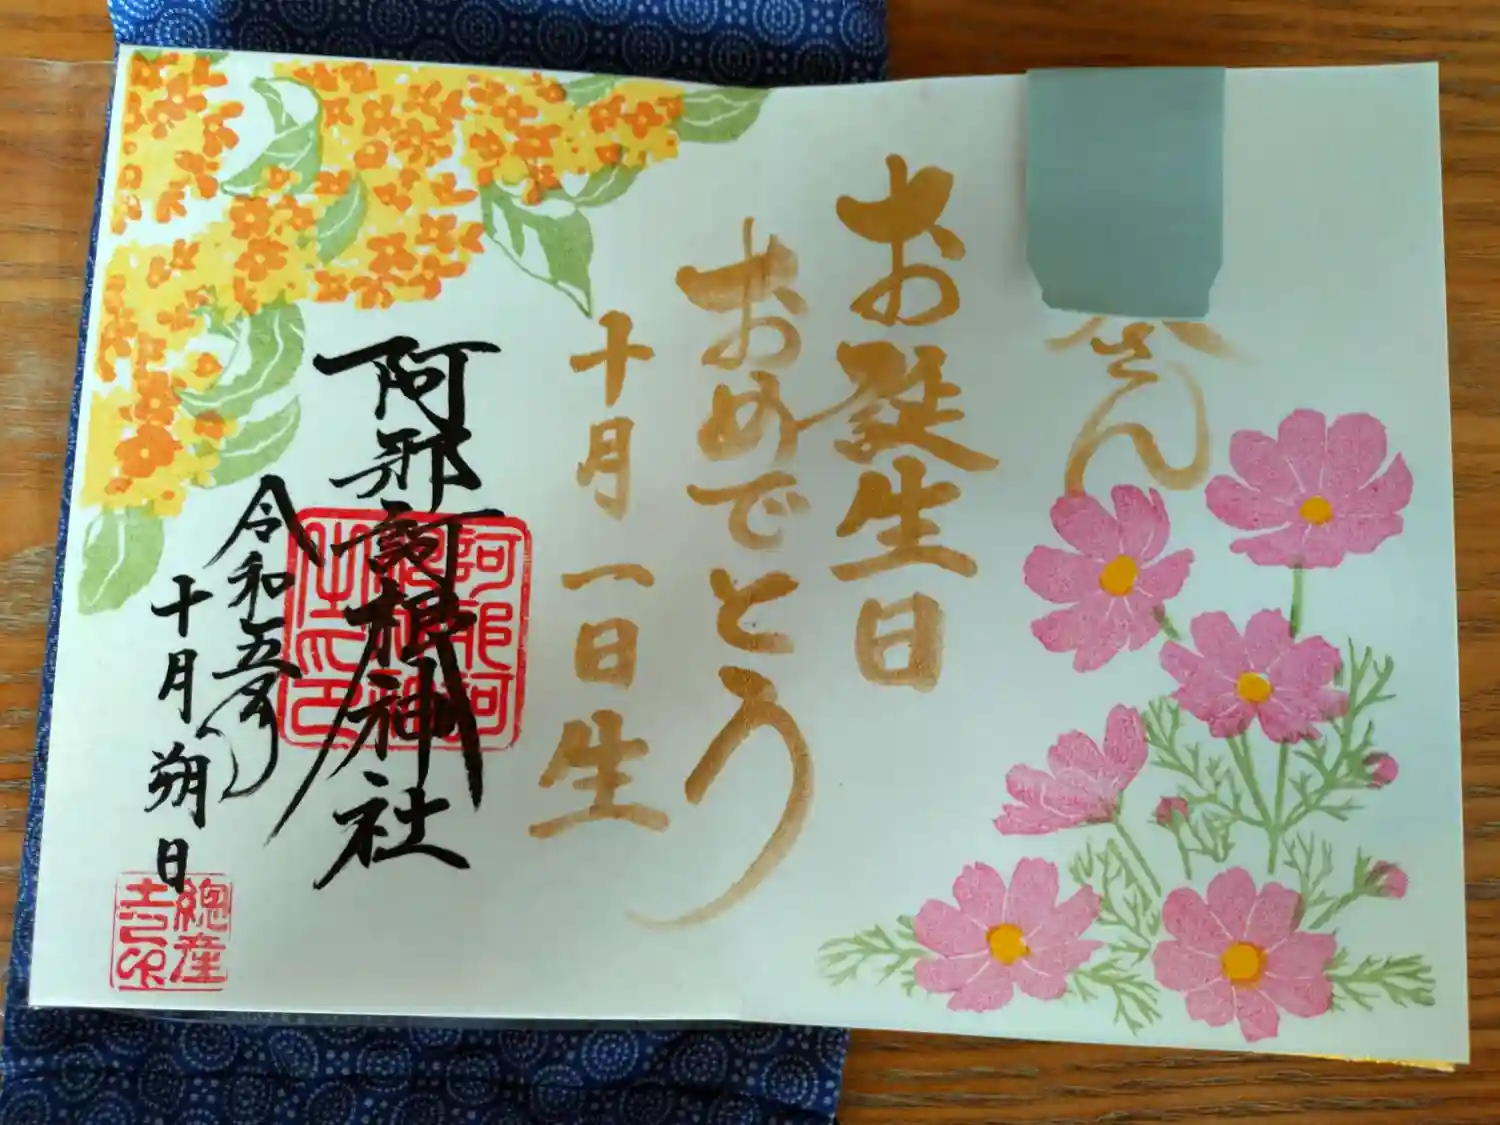 さん
お誕生日
おめでとう
十月一日生
阿邪訶根神社
令和五年
十月朔日
總産